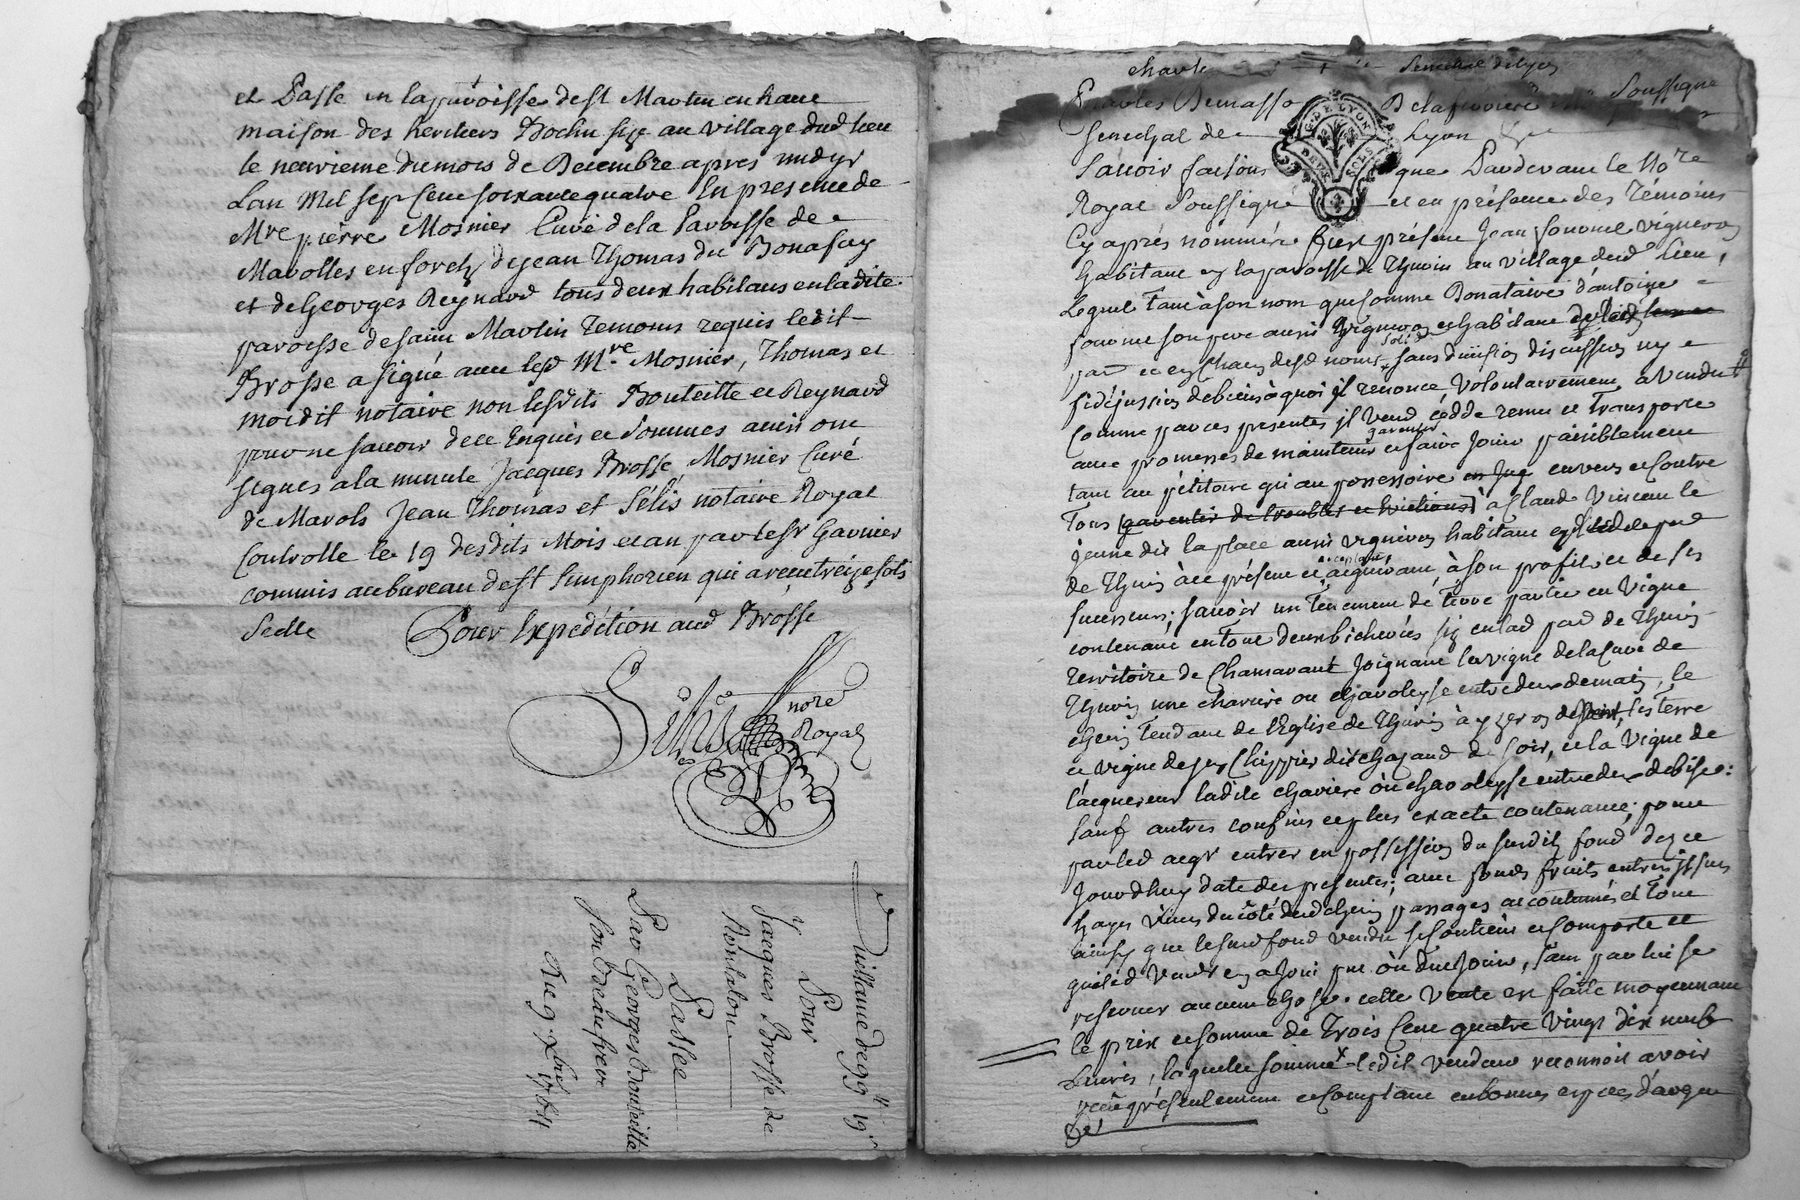 et Passé en la paroisse de st Martin en haut
maison des heritiers Bochu size au village dud lieu
le neuvieme du mois de Decembre apres midy
Lan Mil sept Cent soixante quatre En presence de
Mre pierre Mosnier Curé de la Paroisse de
Marolles en forely de jean Thomas du Bonafay
et de Georges Reynard tous deux habitans en la dite
paroisse de saint Martin Temoins requis ledit
Brosse a signé avec led Mre Mosnier, Thomas et
moidit notaire non lesdits Bouteille et Reynard
pour ne savoir de ce Enquis et sommés ainsi ont
signes a la minute Jacques Brosse, Mosnier Curé
de Marols Jean Thomas et Sélis notaire Royal
Controllé le 19 desdits Mois et an par le sr Garnier
commis au bureau de st Simphorien qui a reçu treize sols
Scellé Pour Expédition aud Brosse
nore
Royal
Quittance de 99 19
Pour
Jacques Brosse de
Passée
Par Georges Bouteille
son Beaufrere
Du 9 xbre 1764
charle Senechal de Lyon
Charles De masso De la ferriere soussigné
Senechal de Lyon
G. DE LYON
DEUX SOLS
Savoir faisons que Pardevant le Nore
Royal Soussigné et en présence des Témoins
Cy aprés nommés fut présent Jean vigneron
habitant en la paroisse de Thurin au village dud Lieu,
Lequel tant à son nom que comme Donataire d'antoine
son pere aussi Vigneron et habitant
solid
par et en chacun desd noms, sans division discussion ny
fidéjussion de biens à quoi il renonce volontairement, a vendu
Comme par ces presentes il Vend cédde remet et Transporte
garentir
avec promesses de maintenir et faire Jouir paisiblement
tant au pétitoire qu'au possessoire envers et Contre
Tous garentir de troubles et evictions à Claude Vincent le
jeune dit la place aussi vigneron habitant
acceptant
de Thurin à ce présent et acquerant, à son profit et de ses
successeurs; savoir un Tenement de Terre partie en Vigne
contenant en tout deux bicherées sis en lad par de Thurin
territoire de Chamavant Joignant la vigne de la Cure de
Thurin une charriere ou entredeux de matin, le
chemin Tendant de l'Eglise de Thurin à yzeron les Terre
et vigne de jean Chippier dit Chazaud de soir, et la Vigne de
l'acquereur ladite chariere ou entredeux de bise:
sauf autres confins et plus exacte contenance; pour
par led acqr entrer en possession du susdit fond dez ce
Jourdhuy date des presentes; avec fonds fruits entrées issues
hayes vives du côté dud chemin passages accoutumés et Tout
ainsy que le susd fond vendu se Contient et Comporte et
que led Vendr en a Joui pu ou due Jouir, sans par lui se
reserver aucune chose. cette vente est faite moyennant
le prix et somme de Trois Cent quatre Vingt dix neuf
Livres, laquelle somme ledit Vendeur reconnoit avoir
reçue présentement et Comptant en bonnes espèces d'argent
De